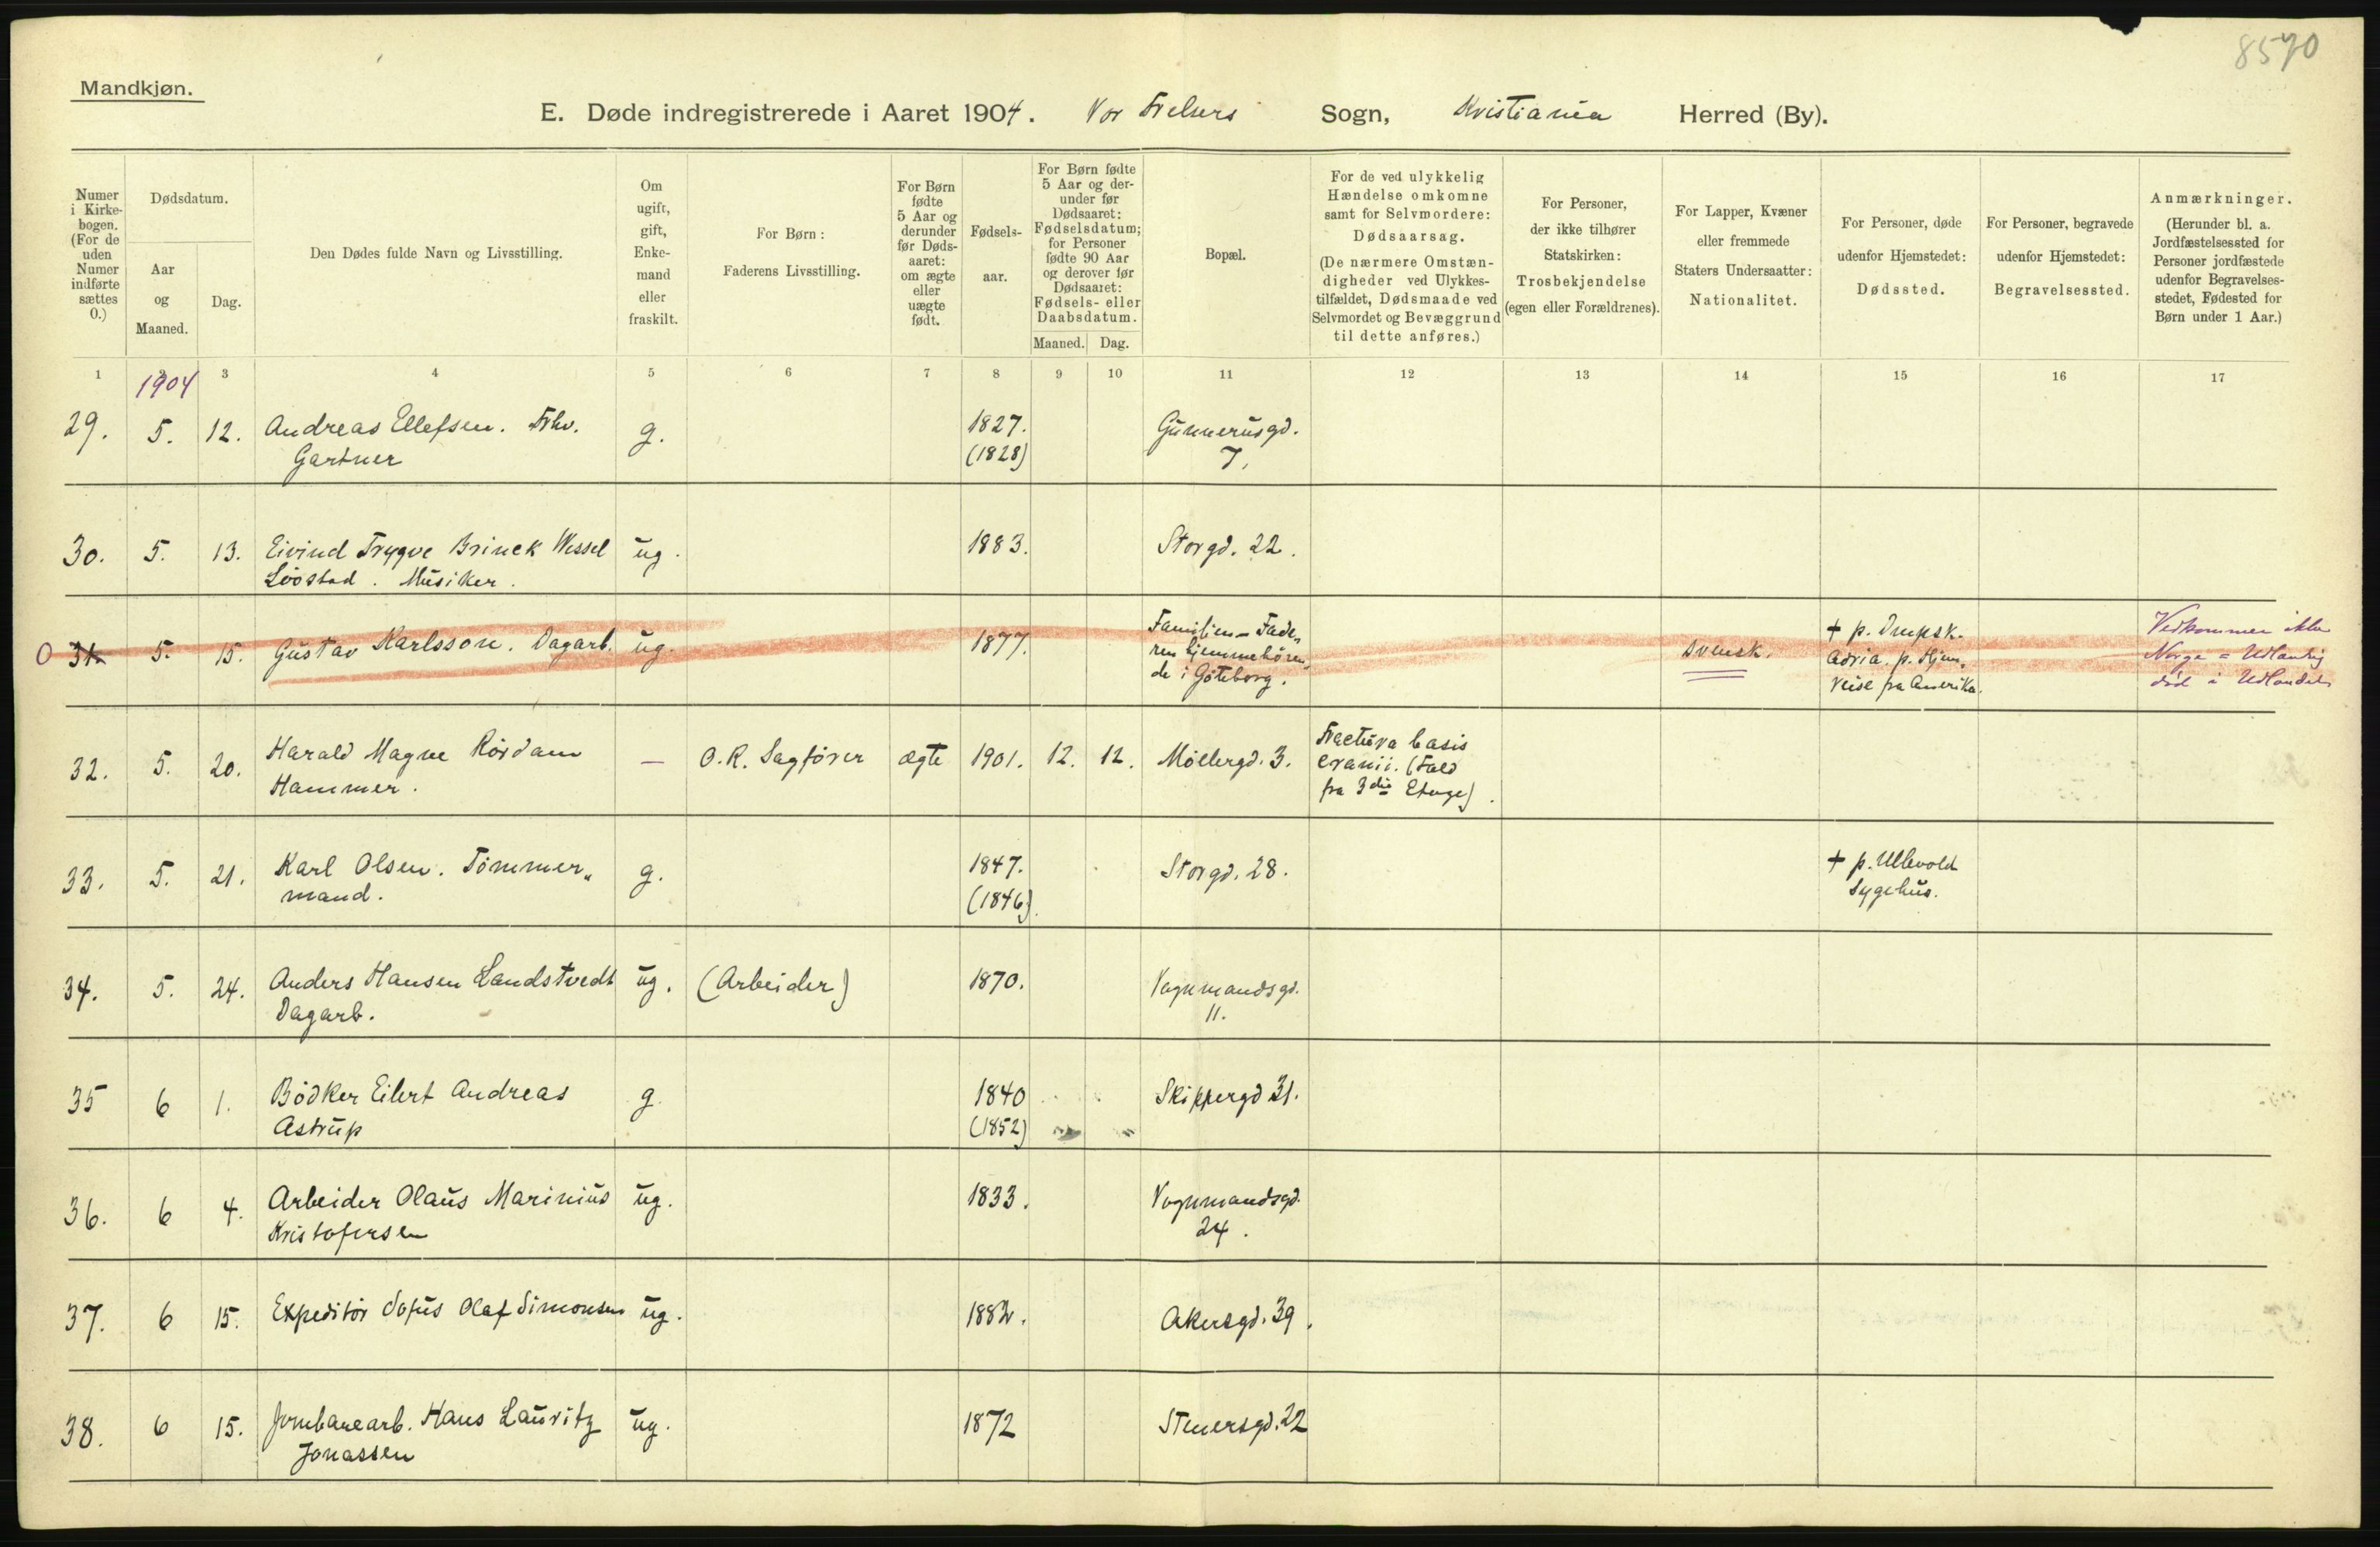 8570
Mandkjøn.
E. Døde indregistrerede i Aaret 1904. Vor Frelsers Sogn, Kristiania Herred (By).
Numer
i Kirke-
bogen.
(For de
uden
Numer
indførte
sættes
0.)
Dødsdatum.
Aar
og
Maaned.
Dag.
Den Dødes fulde Navn og Livsstilling.
Om
ugift,
gift,
Enke-
mand
eller
fraskilt.
For Børn:
Faderens Livsstilling.
For Børn
fødte
5 Aar og
derunder
før Døds-
aaret:
om ægte
eller
uægte
født.
Fødsels-
aar.
For Børn fødte
5 Aar og der-
under før
Dødsaaret:
Fødselsdatum;
for Personer
fødte 90 Aar
og derover før
Dødsaaret:
Fødsels- eller
Daabsdatum.
Maaned. Dag.
Bopæl.
For de ved ulykkelig
Hændelse omkomne
samt for Selvmordere:
Dødsaarsag.
(De nærmere Omstæn-
digheder ved Ulykkes-
tilfældet, Dødsmaade ved
Selvmordet og Bevæggrund
til dette anføres.)
For Personer,
der ikke tilhører
Statskirken:
Trosbekjendelse
(egen eller Forældrenes).
For Lapper, Kvæner
eller fremmede
Staters Undersaatter:
Nationalitet.
For Personer, døde
udenfor Hjemstedet:
Dødssted.
For Personer, begravede
udenfor Hjemstedet:
Begravelsessted.
Anmærkninger.
(Herunder bl. a.
Jordfæstelsessted for
Personer jordfæstede
udenfor Begravelses-
stedet, Fødested for
Børn under 1 Aar.)
1 2 3 4 5 6 7 8 9 10 11 12 13 14 15 16 17
1904
29. 5. 12. Andreas Ellefsen. Fhv. g. 1827. Gunnerusgd.
Gartner (1828) 7.
30. 5. 13. Eivind Trygve Brinck Wessel ug. 1883. Storgd. 22.
Löostad. Musiker.
0 31. 5. 15. Gustav Karlsson. Dagarb. ug. 1877. Familien - Fade- svensk. + p. Dmpsk. Vedkommer ikke
ren hjemmehören- Adria. p. Hjem- Norge = Udlænding
de i Göteborg. reise fra Amerika. död i Udlandet
32. 5. 20. Harald Magne Rördam — O.R. Sagförer ægte 1901. 12. 12. Möllergd. 3. Fractura basis
Hammer. cranii. (Fald
fra 3die Etage).
33. 5. 21. Karl Olsen. Tömmer- g. 1847. Storgd. 28. + p. Ullevold
mand. (1846). Sygehus.
34. 5. 24. Anders Hansen Landstvedt ug. (Arbeider) 1870. Vognmandsgd.
Dagarb. 11.
35 6 1. Bödker Eilert Andreas g. 1840 Skippergd 31.
Astrup (1852)
36. 6 4. Arbeider Olaus Marinius ug. 1833. Vognmandsgd.
Kristofersen 24.
37. 6 15. Expeditör Sofus Olaf Simonsen ug. 1882. Akersgd. 39.
38. 6 15. Jernbanearb. Hans Lauritz ug. 1872 Stenersgd. 22
Jonassen